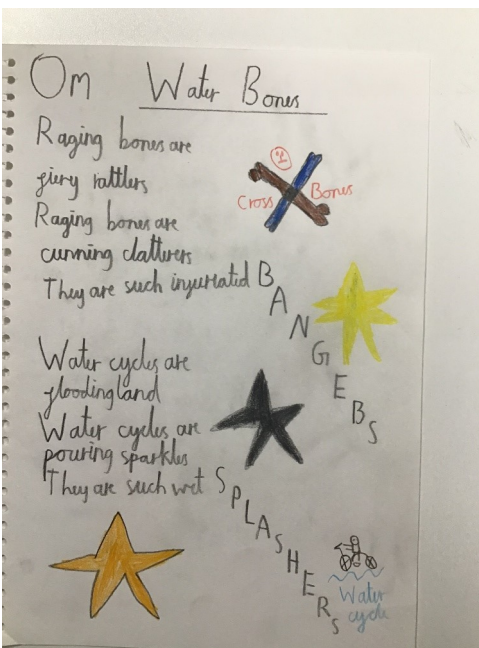 Om Water Bones
Raging bones are
fiery rattlers
Raging bones are
cunning clatterers
They are such infuriated BANGEBS
1
Cross Bones
Water cycles are
flooding land
Water cycles are
pouring sparkles
They are such wet SPLASHERS
Water
cycle